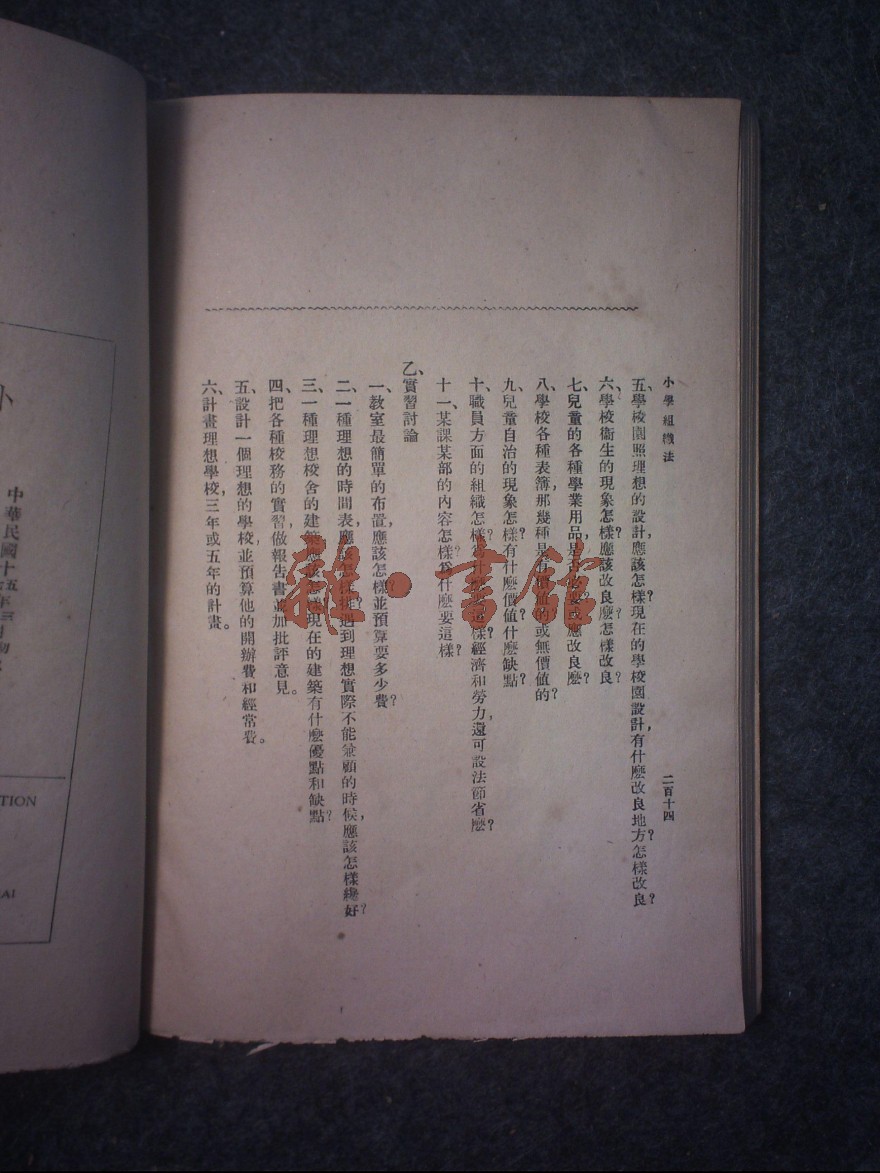 小學組織法
二百十四
五、學校園照理想的設計，應該怎樣？現在的學校園設計，有什麽改良地方？怎樣改良？
六、學校衞生的現象怎樣？應該改良麽？怎樣改良？
七、兒童的各種學業用品，是否必要？或應改良麽？
八、學校各種表簿，那幾種是有價值的？或無價值的？
九、兒童自治的現象怎樣？有什麽價值？什麽缺點？
十、職員方面的組織怎樣？爲什麽要這樣？經濟和勞力，還可設法節省麽？
十一、某課某部的內容怎樣？爲什麽要這樣？
乙、實習討論
一、教室最簡單的布置，應該怎樣？並預算要多少費？
二、一種理想的時間表，應該怎樣排？遇到理想實際不能兼顧的時候，應該怎樣纔好？
三、一種理想校舍的建築，應該怎樣？現在的建築有什麽優點和缺點？
四、把各種校務的實習，做報告書並加批評意見。
五、設計一個理想的學校，並預算他的開辦費和經常費。
六、計畫理想學校，三年或五年的計畫。
雜·書館
小
中華民國十五年三月初
TION
AI